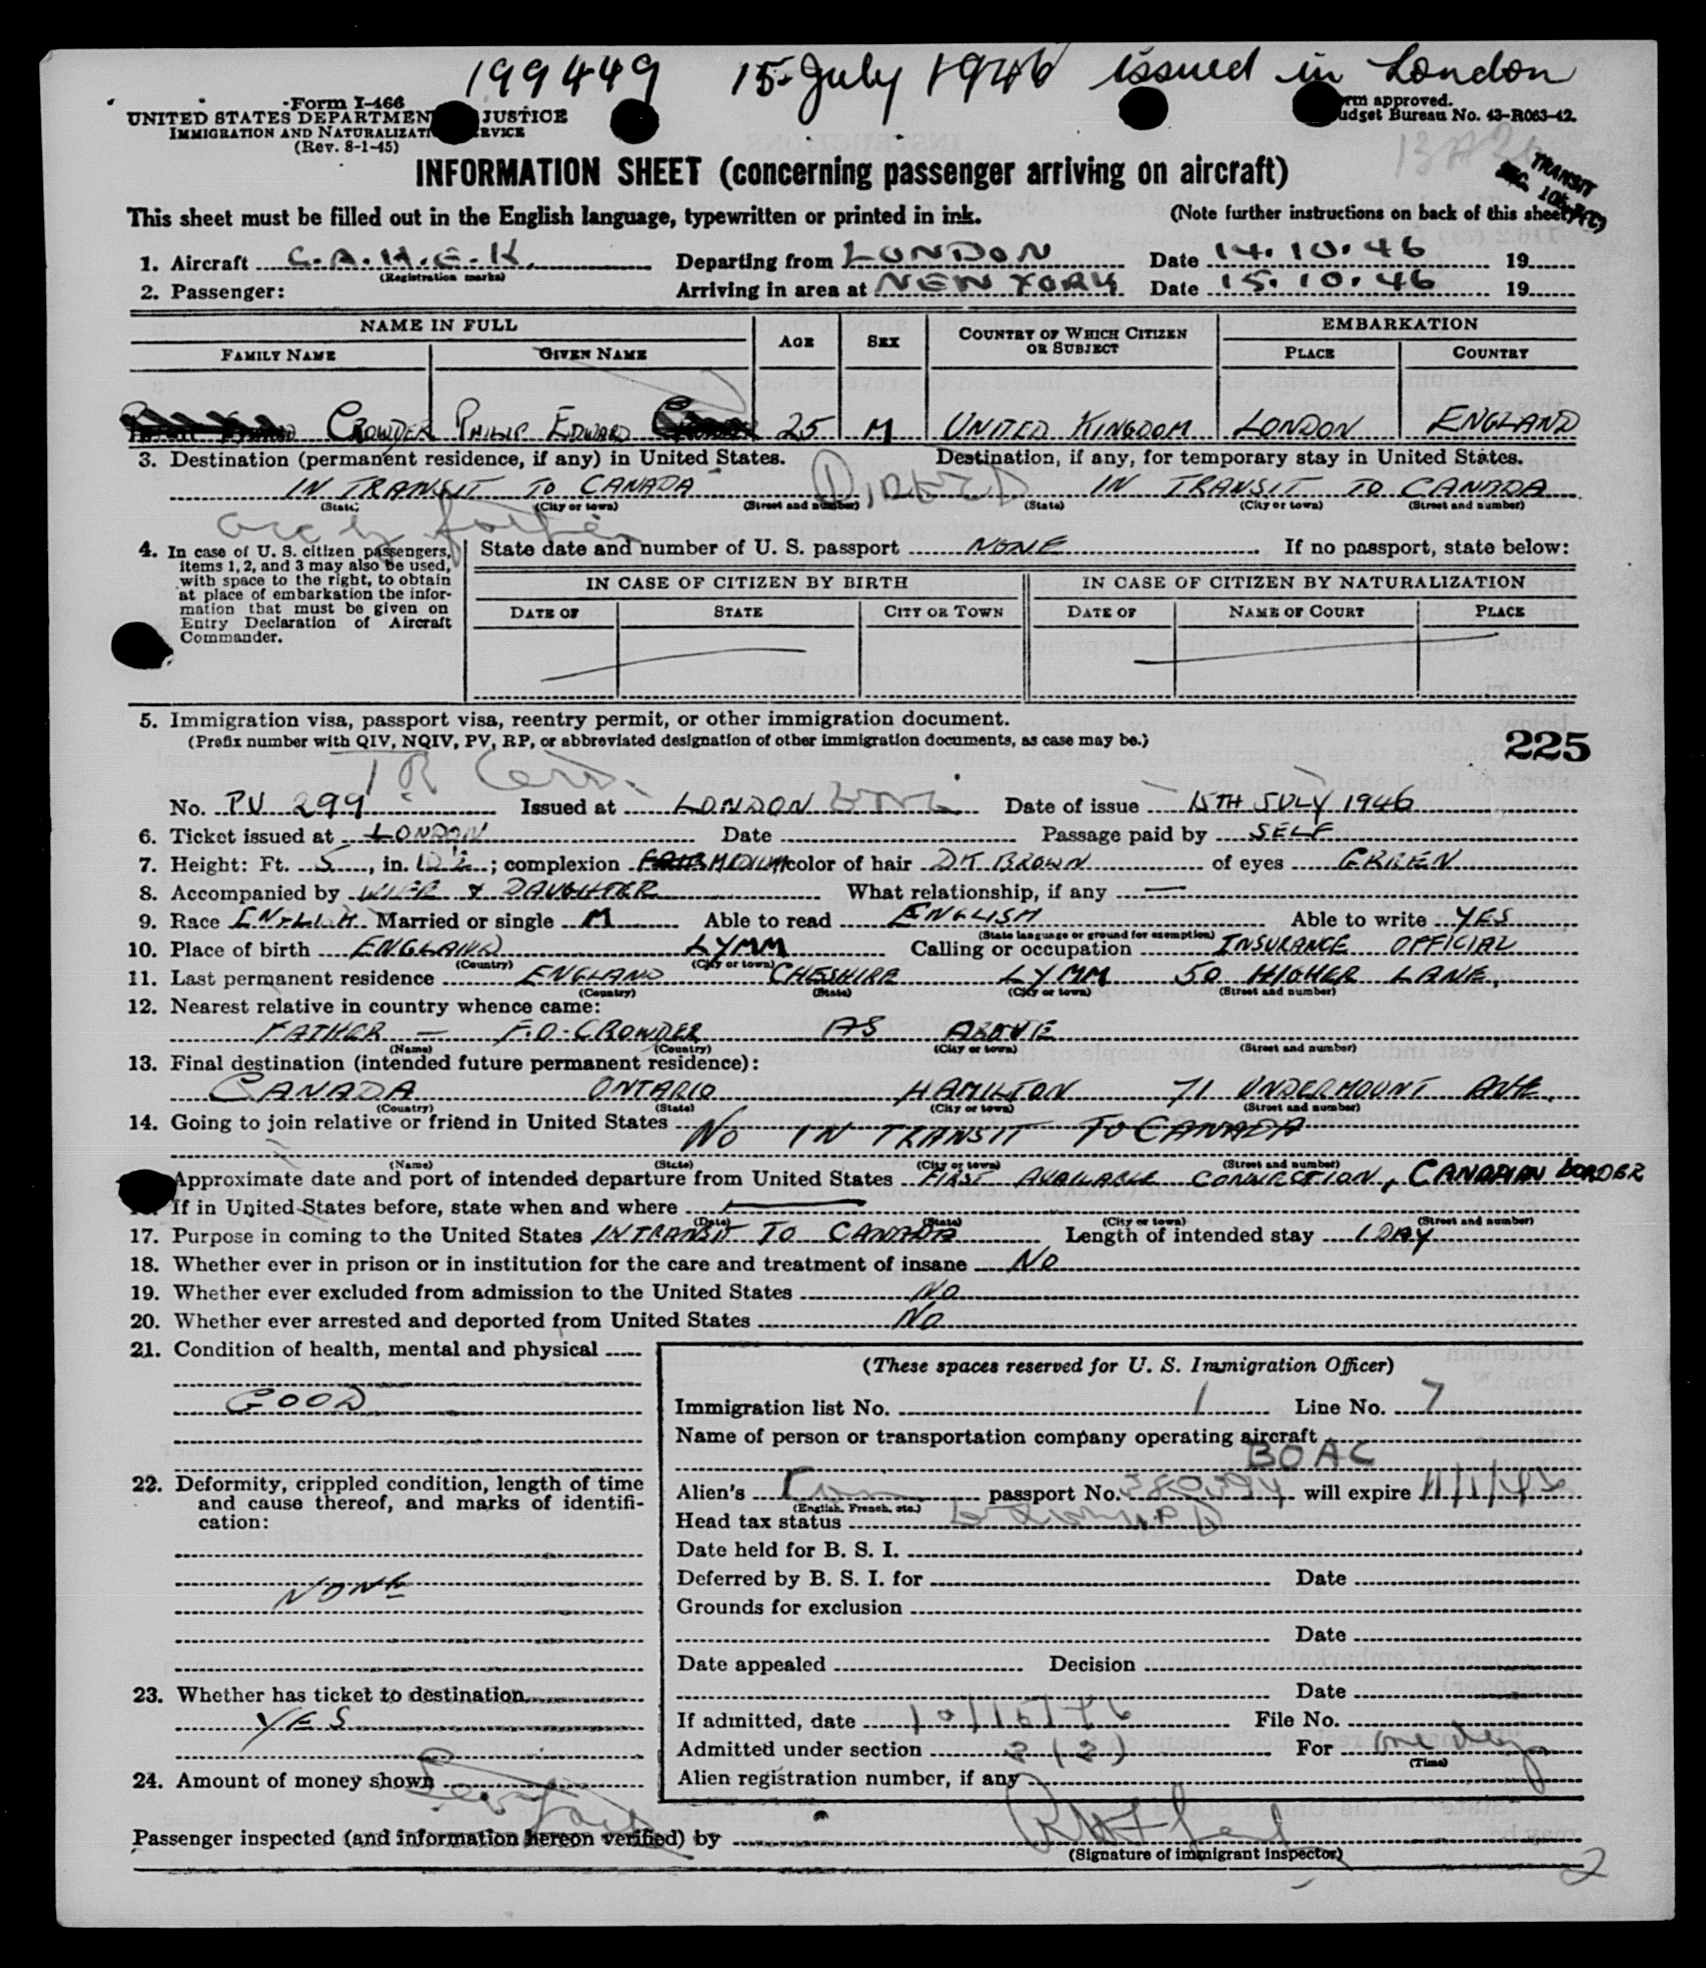 199449 15 July 1946 issued in London
Form I-466
UNITED STATES DEPARTMENT JUSTICE
IMMIGRATION AND NATURALIZATI RVICE
(Rev. 8-1-45)
rm approved.
udget Bureau No. 43-R063-42.
TRANSIT
INFORMATION SHEET (concerning passenger arriving on aircraft)
This sheet must be filled out in the English language, typewritten or printed in ink. (Note further instructions on back of this sheet)
1. Aircraft G.A.H.E.K. (Registration marks) Departing from LONDON Date 14.10.46 19
2. Passenger: Arriving in area at NEW YORK Date 15.10.46 19
NAME IN FULL AGE SEX COUNTRY OF WHICH CITIZEN OR SUBJECT EMBARKATION
FAMILY NAME GIVEN NAME PLACE COUNTRY
CROWDER PHILIP EDWARD 25 M UNITED KINGDOM LONDON ENGLAND
3. Destination (permanent residence, if any) in United States. Destination, if any, for temporary stay in United States.
IN TRANSIT TO CANADA IN TRANSIT TO CANADA
(State) (City or town) (Street and number) (State) (City or town) (Street and number)
4. In case of U. S. citizen passengers, items 1, 2, and 3 may also be used, with space to the right, to obtain at place of embarkation the information that must be given on Entry Declaration of Aircraft Commander.
State date and number of U. S. passport NONE If no passport, state below:
IN CASE OF CITIZEN BY BIRTH IN CASE OF CITIZEN BY NATURALIZATION
DATE OF STATE CITY OR TOWN DATE OF NAME OF COURT PLACE
5. Immigration visa, passport visa, reentry permit, or other immigration document.
(Prefix number with QIV, NQIV, PV, RP, or abbreviated designation of other immigration documents, as case may be.)
225
No. PV 299 Issued at LONDON Date of issue 15TH JULY 1946
6. Ticket issued at LONDON Date Passage paid by SELF
7. Height: Ft. 5, in. 10½; complexion MEDIUM color of hair DK BROWN of eyes GREEN
8. Accompanied by WIFE & DAUGHTER What relationship, if any —
9. Race ENGLISH Married or single M Able to read ENGLISH Able to write YES
(State language or ground for exemption)
10. Place of birth ENGLAND LYMM Calling or occupation INSURANCE OFFICIAL
(Country) (City or town)
11. Last permanent residence ENGLAND CHESHIRE LYMM 50 HIGHER LANE,
(Country) (State) (City or town) (Street and number)
12. Nearest relative in country whence came:
FATHER — F.O. CROWDER AS ABOVE
(Name) (Country) (City or town) (Street and number)
13. Final destination (intended future permanent residence):
CANADA ONTARIO HAMILTON 71 UNDERMOUNT AVE,
(Country) (State) (City or town) (Street and number)
14. Going to join relative or friend in United States NO IN TRANSIT TO CANADA
(Name) (State) (City or town) (Street and number)
Approximate date and port of intended departure from United States FIRST AVAILABLE CONNECTION, CANADIAN BORDER
If in United States before, state when and where —
(Date) (State) (City or town) (Street and number)
17. Purpose in coming to the United States IN TRANSIT TO CANADA Length of intended stay 1 DAY
18. Whether ever in prison or in institution for the care and treatment of insane NO
19. Whether ever excluded from admission to the United States NO
20. Whether ever arrested and deported from United States NO
21. Condition of health, mental and physical
GOOD
22. Deformity, crippled condition, length of time and cause thereof, and marks of identification:
NONE
23. Whether has ticket to destination
YES
24. Amount of money shown
(These spaces reserved for U. S. Immigration Officer)
Immigration list No. 1 Line No. 7
Name of person or transportation company operating aircraft
BOAC
Alien's passport No. will expire
(English, French, etc.)
Head tax status
Date held for B. S. I.
Deferred by B. S. I. for Date
Grounds for exclusion
Date
Date appealed Decision
Date
If admitted, date 10/15/46 File No.
Admitted under section 3(3) For one day
(Time)
Alien registration number, if any
Passenger inspected (and information hereon verified) by
(Signature of immigrant inspector)
2